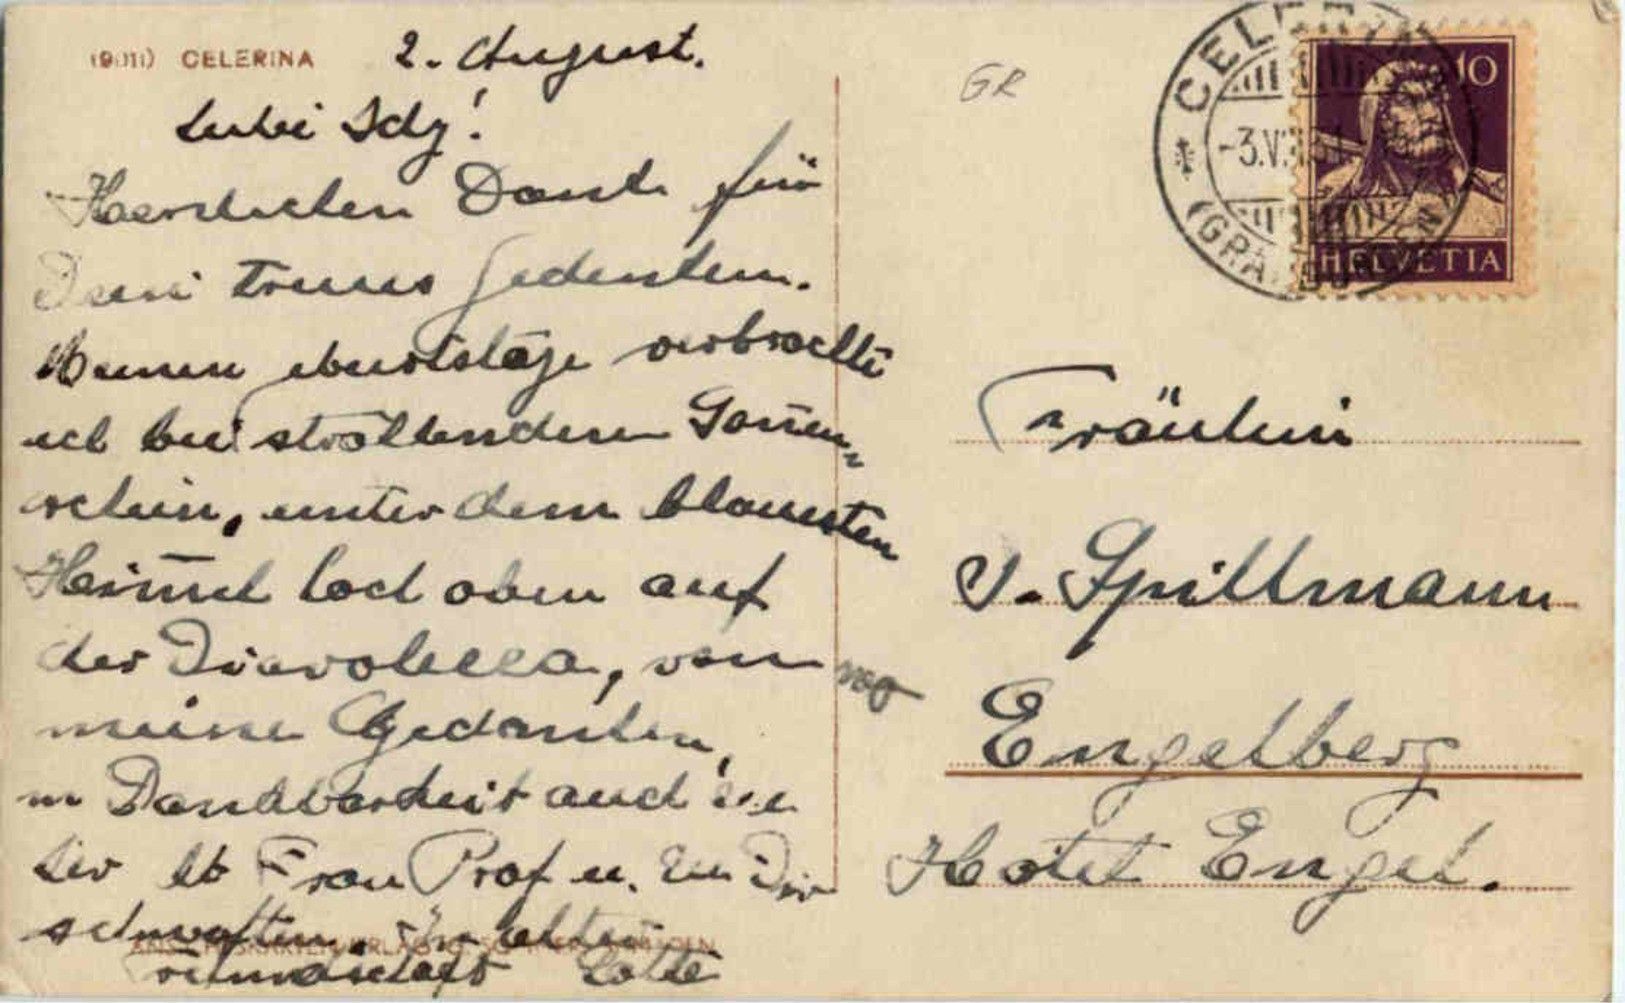 (9011) CELERINA
2. August.
Liebe Idy!
Herzlichen Dank für
Dein treues Gedenken.
Meinen Geburtstag verbrachte
ich bei strahlendem Sonnen-
schein, unter dem blausten
Himmel hoch oben auf
der Diavolezza, von wo
meine Gedanken,
in Dankbarkeit auch zu
der lb Frau Prof u. zu Dir
schweiften. In alter
Lotte
GR
CELERINA
-3.V 31
(GRAUBÜNDEN)
10
HELVETIA
Fräulein
I. Spillmann
Engelberg
Hotel Engel.